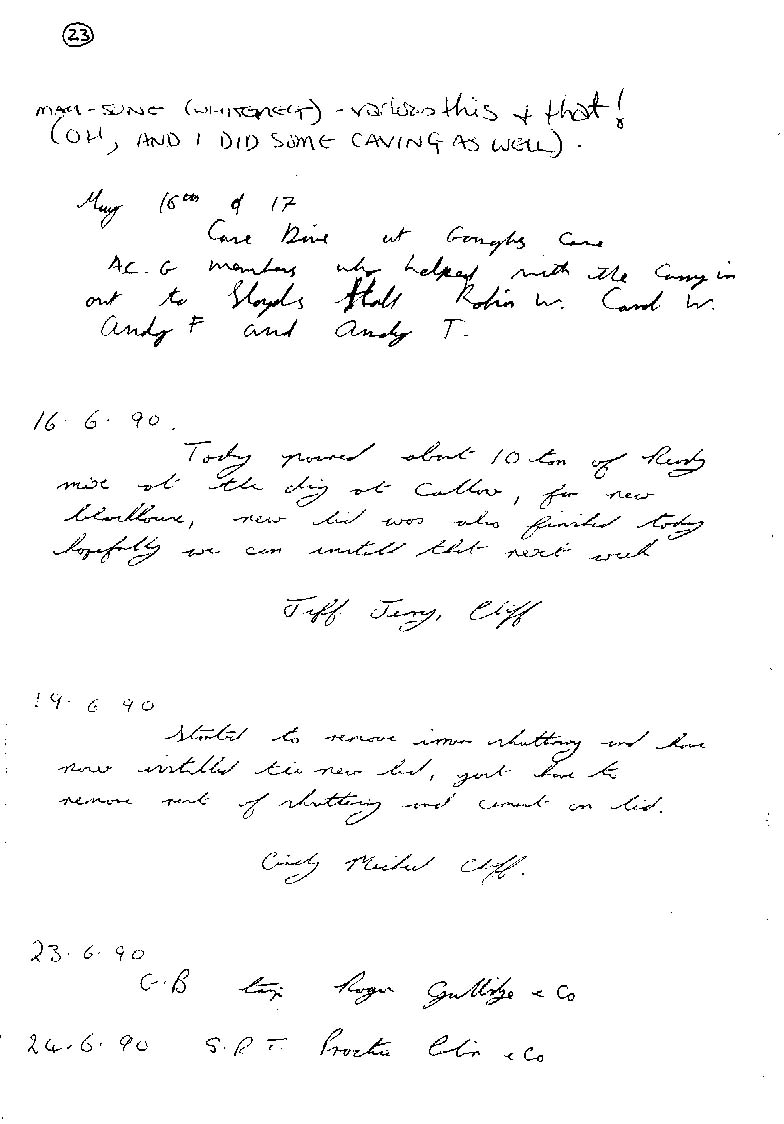 23
MAY - JUNE (WHITENECT) - various this + that!
(OH, AND I DID SOME CAVING AS WELL).
May 16th & 17
Cave Dive at Goughs Cave
AC.G members who helped with the Carry in
out to Lloyds Hall Robin W. Carol W.
Andy F and Andy T.
16. 6. 90.
Today poured about 10 ton of Ready
mix at the dig at Callow, for new
blockhouse, new lid was also finished today
hopefully we can install that next week
Jeff Jerry, Cliff
19. 6 90
Started to remove inner shuttering and have
now installed the new lid, just have to
remove rest of shuttering and cement on lid.
Cindy Michel Cliff.
23. 6. 90
G.B trip Roger & Co
24. 6. 90 S.R.T. Practice Colin & Co